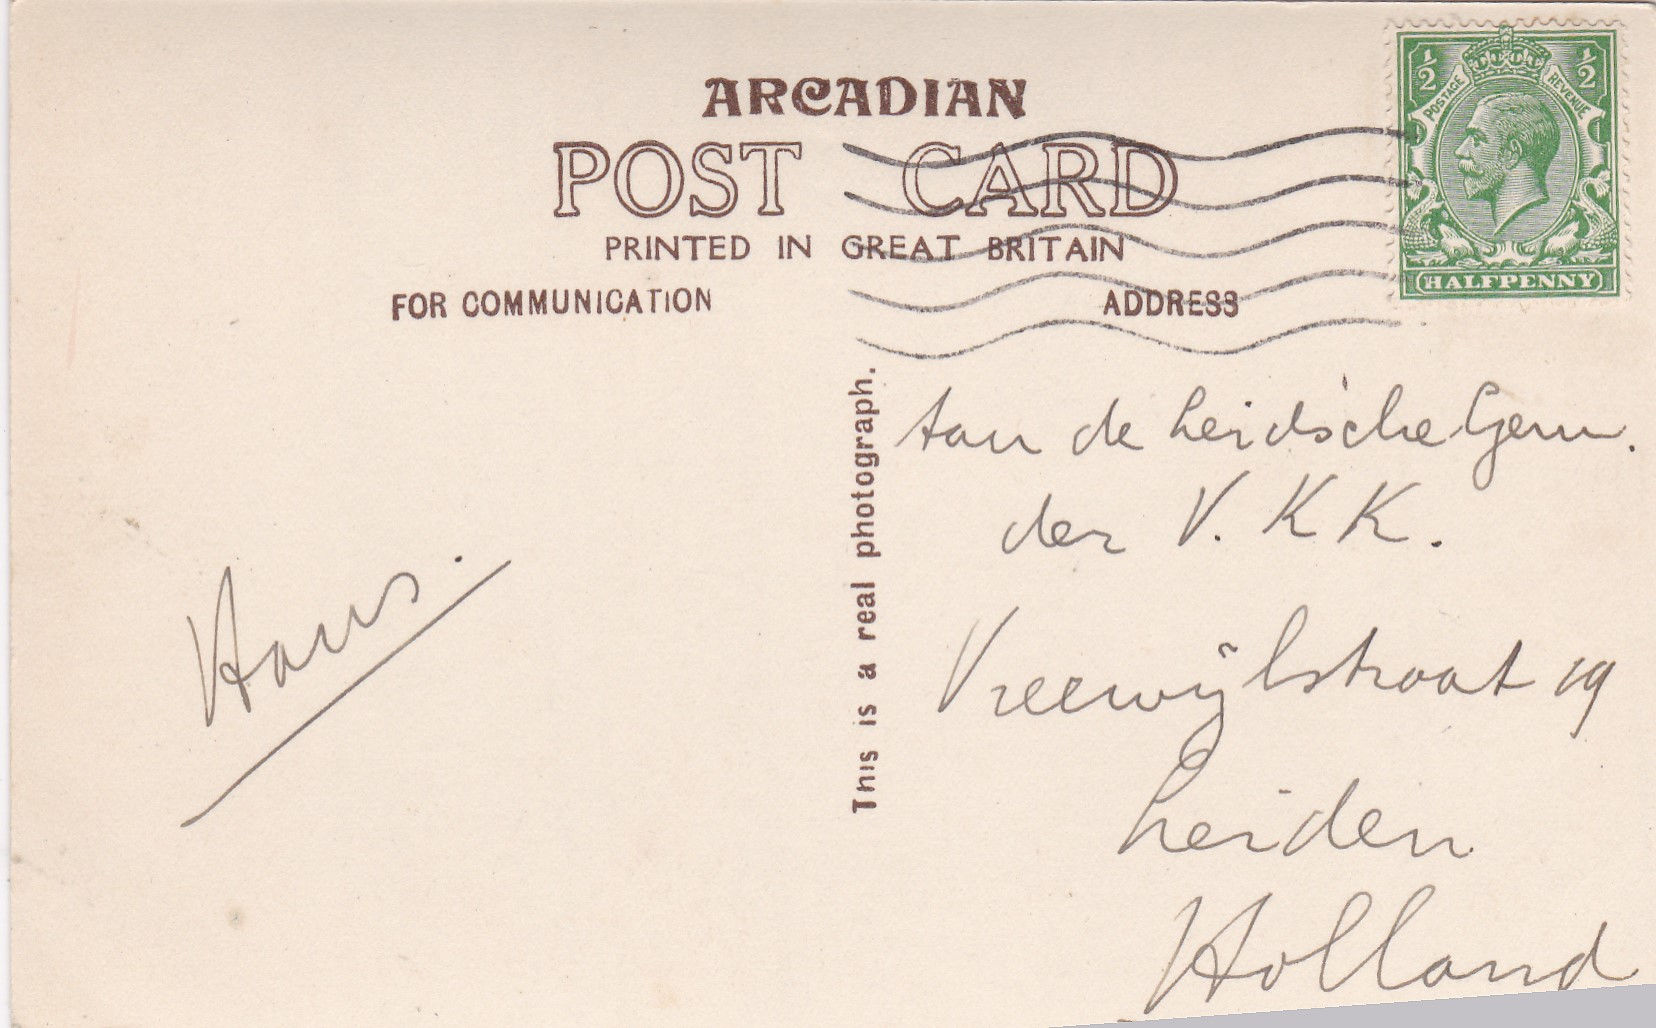 ARCADIAN
POST CARD
PRINTED IN GREAT BRITAIN
FOR COMMUNICATION
ADDRESS
½ ½
POSTAGE REVENUE
HALFPENNY
This is a real photograph.
Hans.
Aan de Leidsche Gem.
der V. K K.
Vreewijkstraat 19
Leiden
Holland